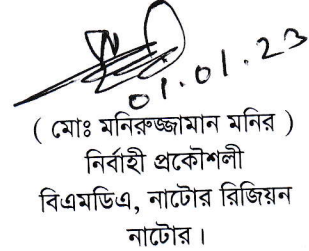 01.01.23
( মোঃ মনিরুজ্জামান মনির )
নির্বাহী প্রকৌশলী
বিএমডিএ, নাটোর রিজিয়ন
নাটোর।